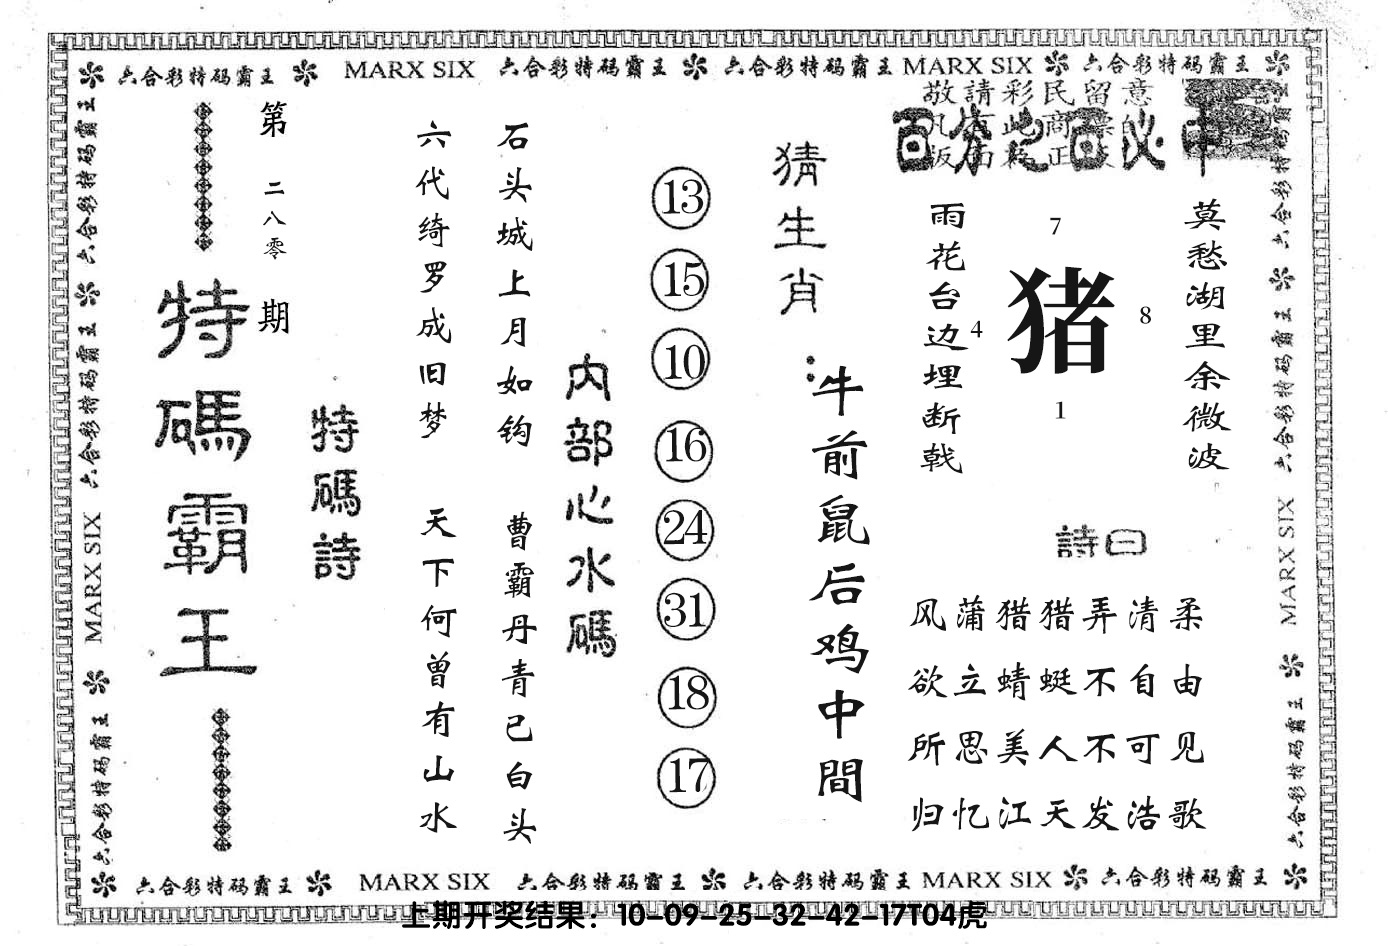 六合彩特码霸王 MARX SIX 六合彩特码霸王 六合彩特码霸王 MARX SIX 六合彩特码霸王
六合彩特码霸王
六合彩特码霸王
MARX SIX
六合彩特码霸王
第二八零期
特碼霸王
特碼詩
六代绮罗成旧梦
天下何曾有山水
石头城上月如钩
曹霸丹青已白头
内部心水碼
13
15
10
16
24
31
18
17
猜生肖:
牛前鼠后鸡中間
敬請彩民留意
百分之百必中
雨花台边埋断戟
7
4
猪
8
1
莫愁湖里余微波
詩曰
风蒲猎猎弄清柔
欲立蜻蜓不自由
所思美人不可见
归忆江天发浩歌
六合彩特码霸王
六合彩特码霸王
MARX SIX
六合彩特码霸王
六合彩特码霸王 MARX SIX 六合彩特码霸王 六合彩特码霸王 MARX SIX 六合彩特码霸王
上期开奖结果：10-09-25-32-42-17T04虎